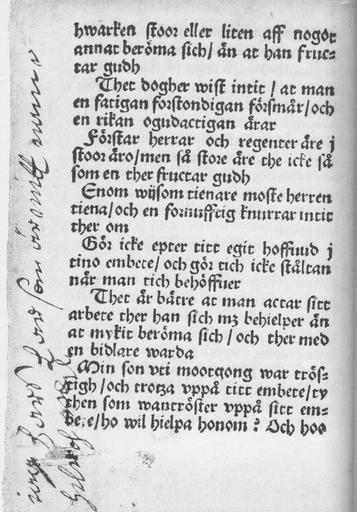 hwarken stoor eller liten aff nogot
annat beröma sich/ än at han fruc-
tar gudh
Thet dogher wist intit / at man
en fatigan forstondigan försmår/och
en rikan ogudactigan ärar
Förstar herrar och regenter äre j
stoor äro/men så store äre the icke så
som en ther fructar gudh
Enom wijsom tienare moste herren
tiena/och en fornufftig knurrar intit
ther om
Gör icke epter titt egit hoffuud j
tino embete/och gör tich icke stältan
når man tich behöffuer
Thet är bätre at man actar sitt
arbete ther han sich mz behielper än
at mykit beröma sich / och ther med
en bidlare warda
Min son vti mootgong war trös-
tigh/och trotza vppå titt embete/ty
then som wantröster vppå sitt em-
bete/ho wil hielpa honom? Och hoo